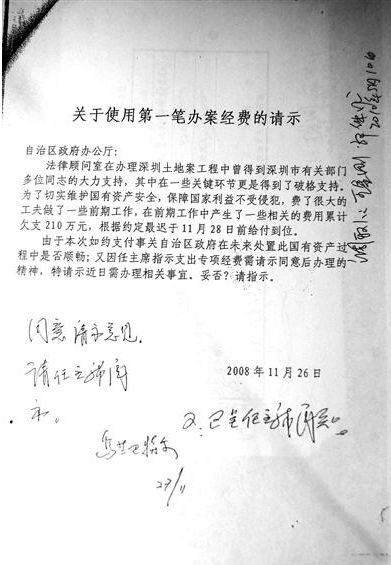 关于使用第一笔办案经费的请示
自治区政府办公厅：
法律顾问室在办理深圳土地案工程中曾得到深圳市有关部门
多位同志的大力支持，其中在一些关键环节更是得到了破格支持。
为了切实维护国有资产安全，保障国家利益不受侵犯，费了很大的
工夫做了一些前期工作，在前期工作中产生了一些相关的费用累计
欠支 210 万元，根据约定最迟于 11 月 28 日前给付到位。
由于本次如约支付事关自治区政府在未来处置此国有资产过
程中是否顺畅；又因任主席指示支出专项经费需请示同意后办理的
精神，特请示近日需办理相关事宜。妥否？请指示。
2008 年 11 月 26 日
同意请示意见。
请任主席阅
示。
乌兰巴特尔
27/11
又：已呈任主席阅示。